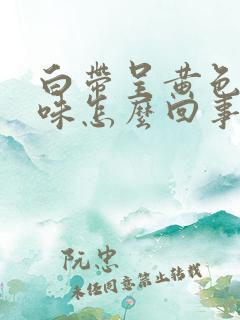 白带呈黄色
味怎麽回事
阮忠
未经同意禁止转载